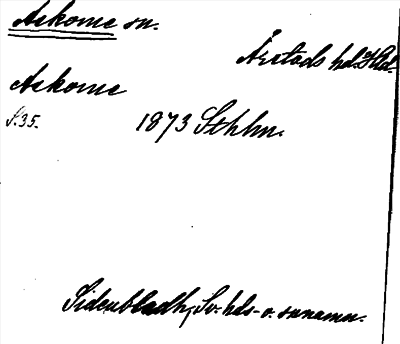 Askome sn.
Årstads hd. Hall.
Askome
S. 35. 1873 Sthlm.
Sidenbladh, Sv. hds- o. snnamn.